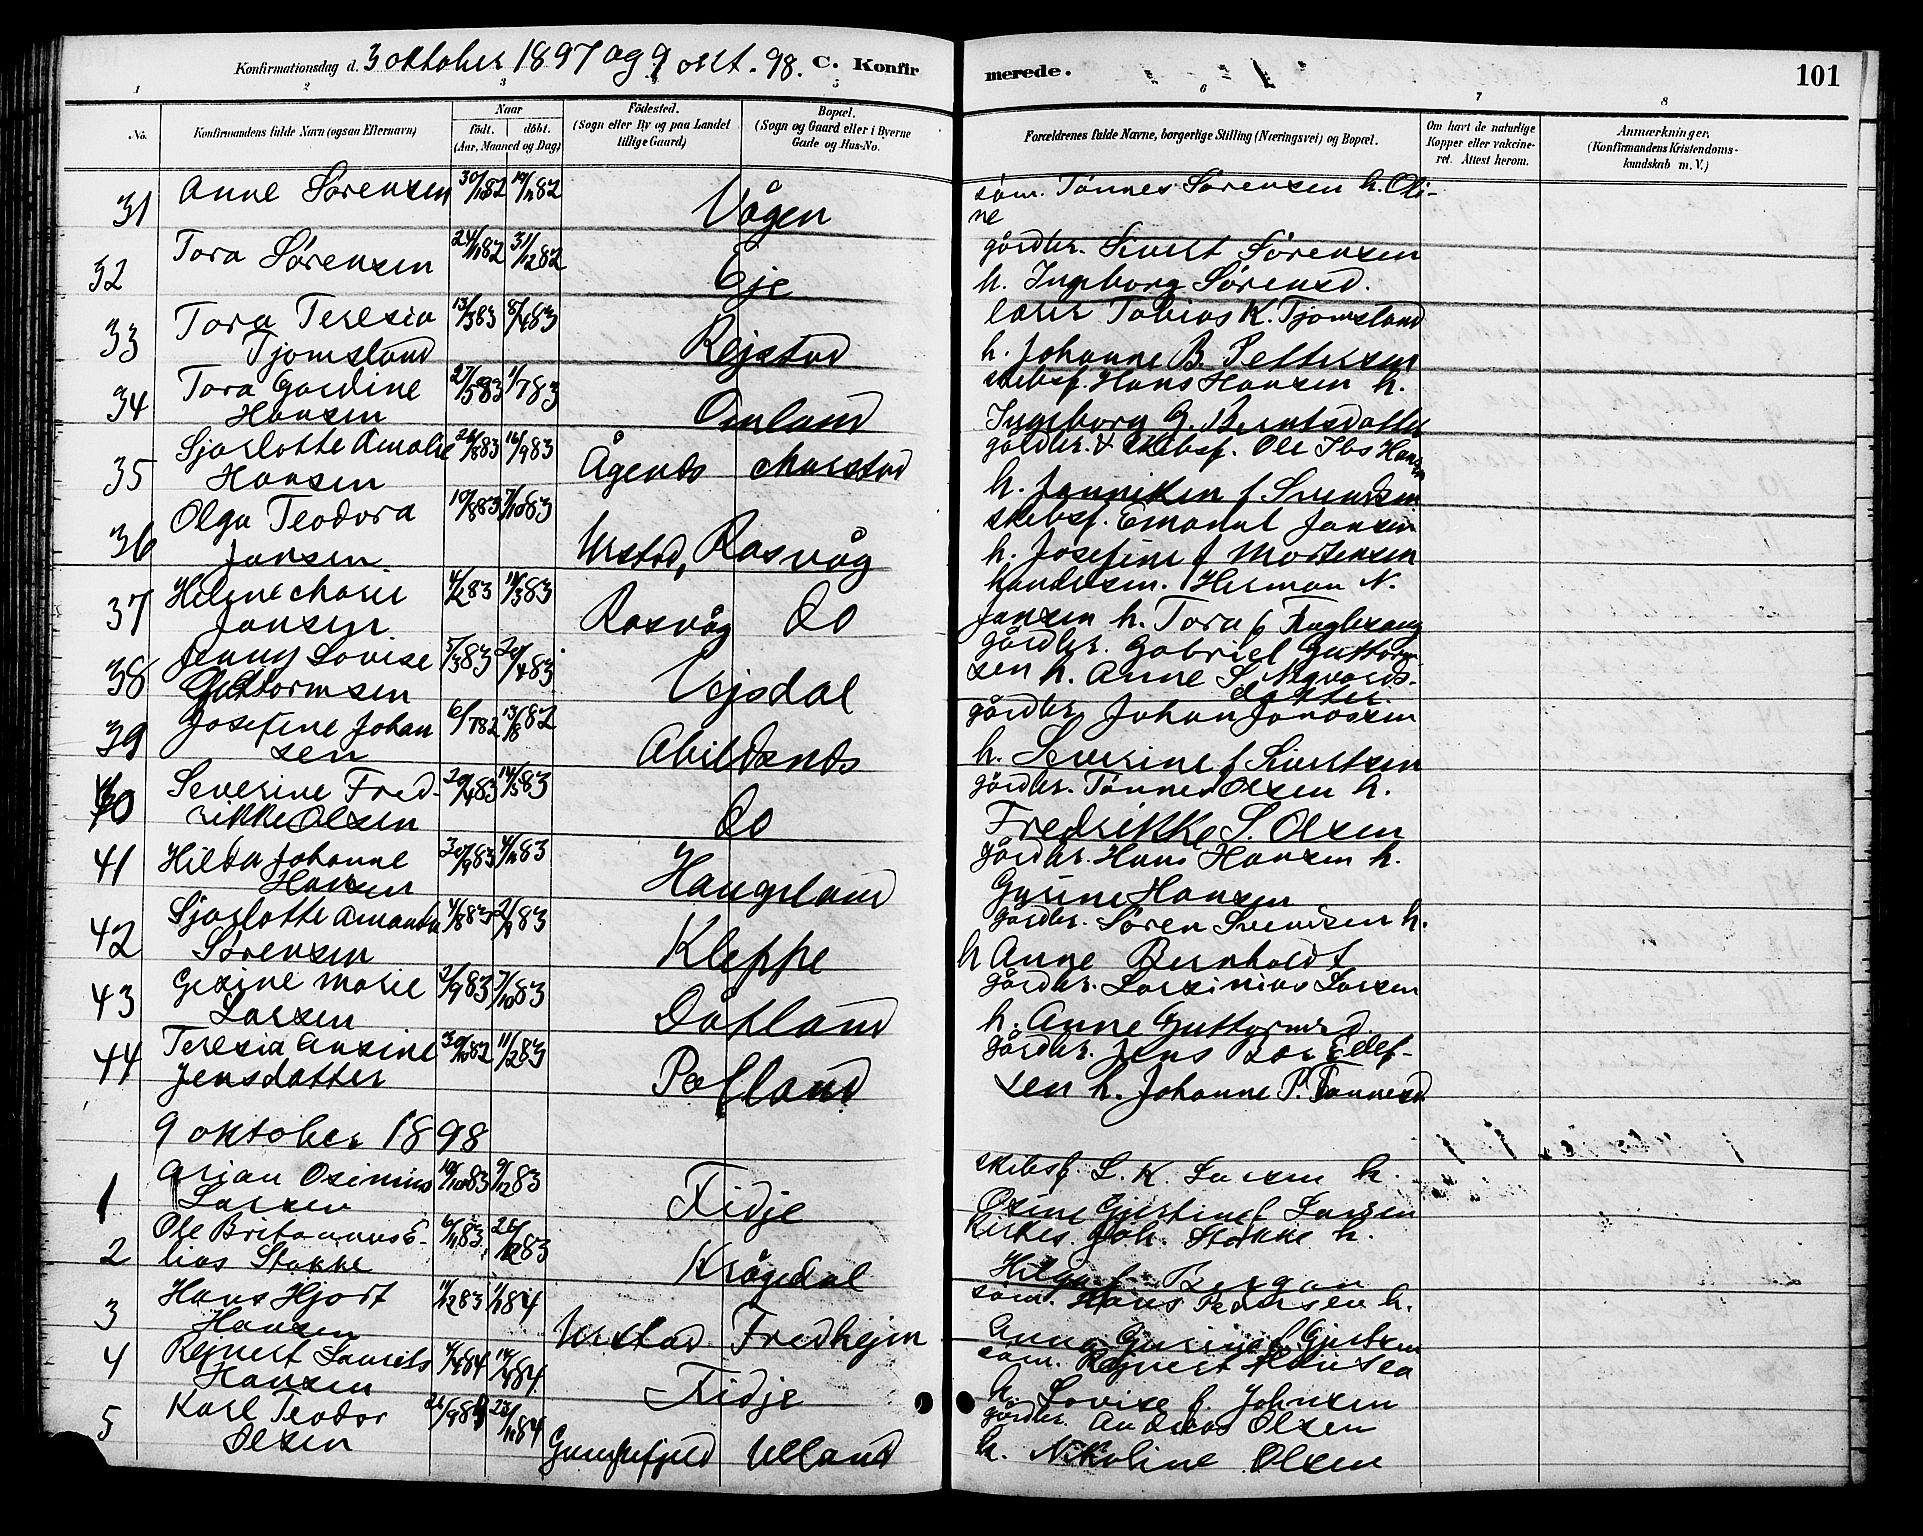 Konfirmationsdag d. 3 oktober 1897 og 9 okt. 98. C. Konfirmerede. 101
1 2 3 5 6 7 8
No. Konfirmandens fulde Navn (ogsaa Efternavn) Naar födt. döbt. (Aar, Maaned og Dag) Födested. (Sogn eller By og paa Landet tillige Gaard) Bopæl. (Sogn og Gaard eller i Byerne Gade og Hus-No. Forældrenes fulde Navne, borgerlige Stilling (Næringsvei) og Bopæl. Om havt de naturlige Kopper eller vakcineret. Attest herom. Anmærkninger. (Konfirmandens Kristendomskundskab m. V.)
31 Anne Sørensen 30/10 82 19/11 82 Vågen søm. Tønnes Sørensen h. Oli-
ne
32 Tora Sørensen 24/11 82 31/12 82 Eje gårdbr. Sivert Sørensen
h. Ingeborg Sørensd.
33 Tora Teresia 13/3 83 8/4 83 Rejstad lærer Tobias K. Tjomsland
Tjomsland h. Johanne B. Pettersen
34 Tora Gardine 27/5 83 1/7 83 Omland skibsf. Hans Hansen h.
Hansen Ingeborg G. Berntsdatter
35 Sjarlotte Amalie 26/8 83 16/9 83 Ågenes Marstad gårdbr. & skibsf. Ole Ibs Hansen
Hansen h. Janniken f Svendsen
36 Olga Teodora 19/8 83 7/10 83 Urstad, Rasvåg skibsf. Emanuel Jansen
Jansen. h. Josefine f Mortensen
37 Helene Marie 4/2 83 18/3 83 Rasvåg do handelsm. Herman N.
Jansen Jansen h. Tora f Fuglevang
38 Jenny Lovise 5/3 83 20/4 83 Vejsdal gårdbr. Gabriel Guttorm-
Guttormsen sen h. Anne S. Neqvards-
datter.
39 Josefine Johan 6/7 82 13/8 82 Abildsnes gårdbr. Johan Jonassen
sen h. Severine f Sivertsen
40 Severine Fred- 20/4 83 14/5 83 do gårdbr. Tønnes Olsen h.
rikke Olsen Fredrikke S. Olsen
41 Hilda Johanne 30/9 83 4/11 83 Haugeland gårdbr. Hans Hansen h.
Hansen Gurine Hansen
42 Sjarlotte Amanda 4/8 83 2/9 83 Kleppe gårdbr. Søren Svendsen h.
Sørensen h Anne Bernholdt
43 Gesine Marie 2/9 83 7/10 83 Dåtland gårdbr. Larsinius Larsen
Larsen h. Anne Guttormsd.
44 Teresia Ansine 30/12 82 11/2 83 Pedland gårdbr. Jens Lar Edef-
Jensdatter sen h. Johanne P. Tønnesd
9 oktober 1898
1 Arian Osimius 19/10 83 9/12 83 Fidje skibsf. L. K. Larsen h.
Larsen Osine Gjertine f Larsen
2 Ole Britannus E- 6/11 83. 26/12 83 Krågedal kirkes. Joh. Stakke h.
lias Stakke Helga f Bergan
3 Hans Hjort 11/12 83 1/1 84 Urstad Fredhejm søm. Hans Pedersen h.
Hansen Anne Gurine f Gjertsen
4 Rejnert Laurits 4/4 84 14/4 84 Fidje søm. Rejnert Hansen
Hansen h. Lovise f. Johnsen
5 Karl Teodor 26/9 83 23/11 84 Gangsefjeld Ulland gårdbr. Andreas Olsen
Olsen h. Nikoline Olsen